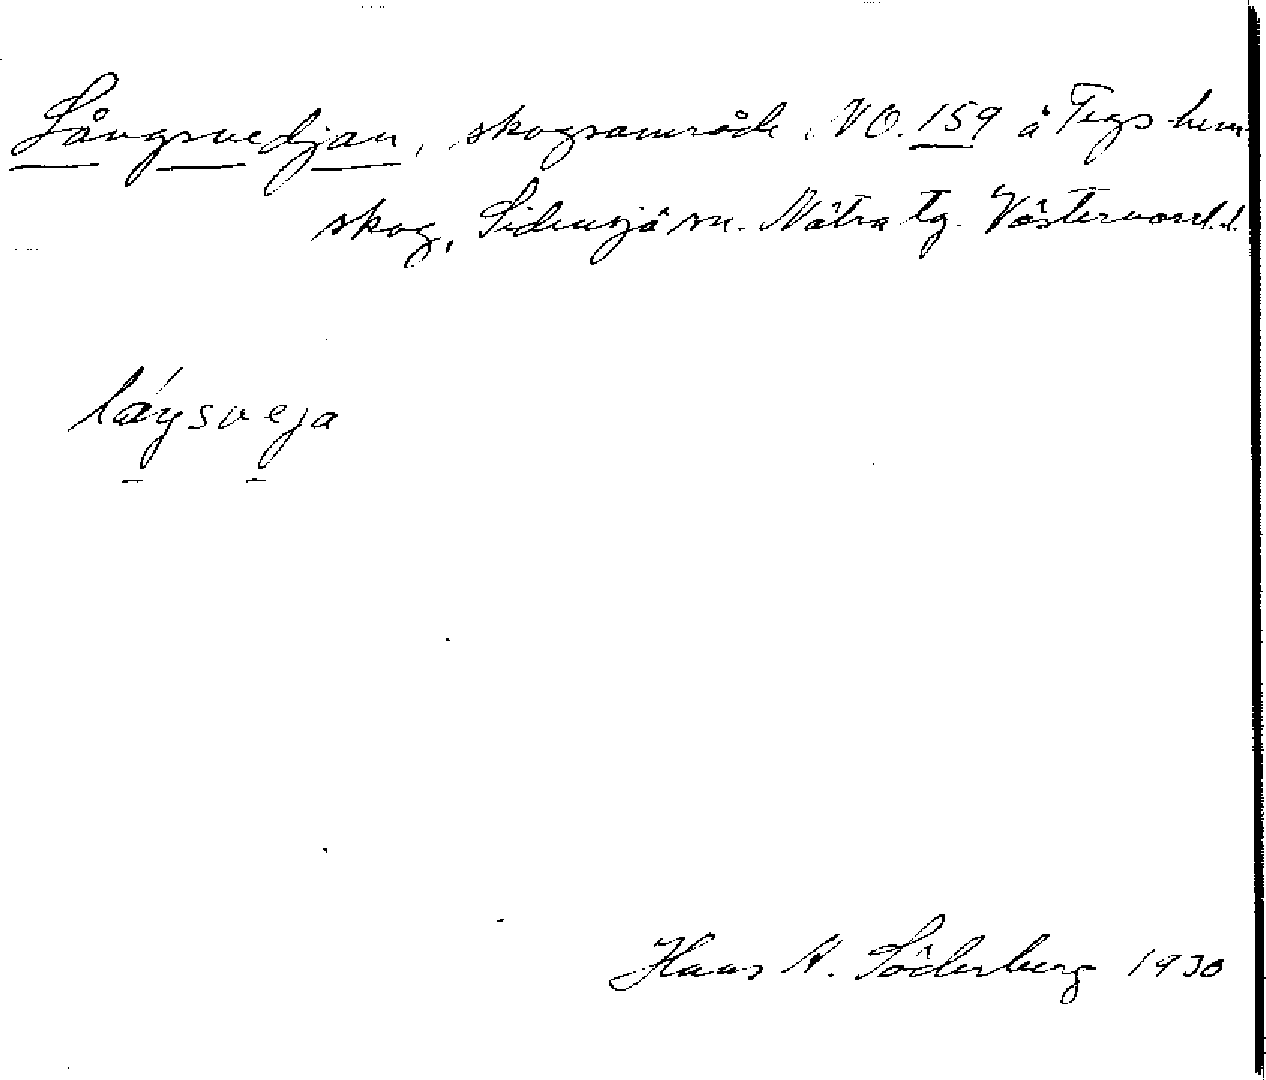 Långsvedjan, skogsområde NO. 159 å Tegs hem-
skog, Sidensjö sn. Nätra tg. Västernorrl. l.
láŋsveja
Hans N. Söderberg 1930